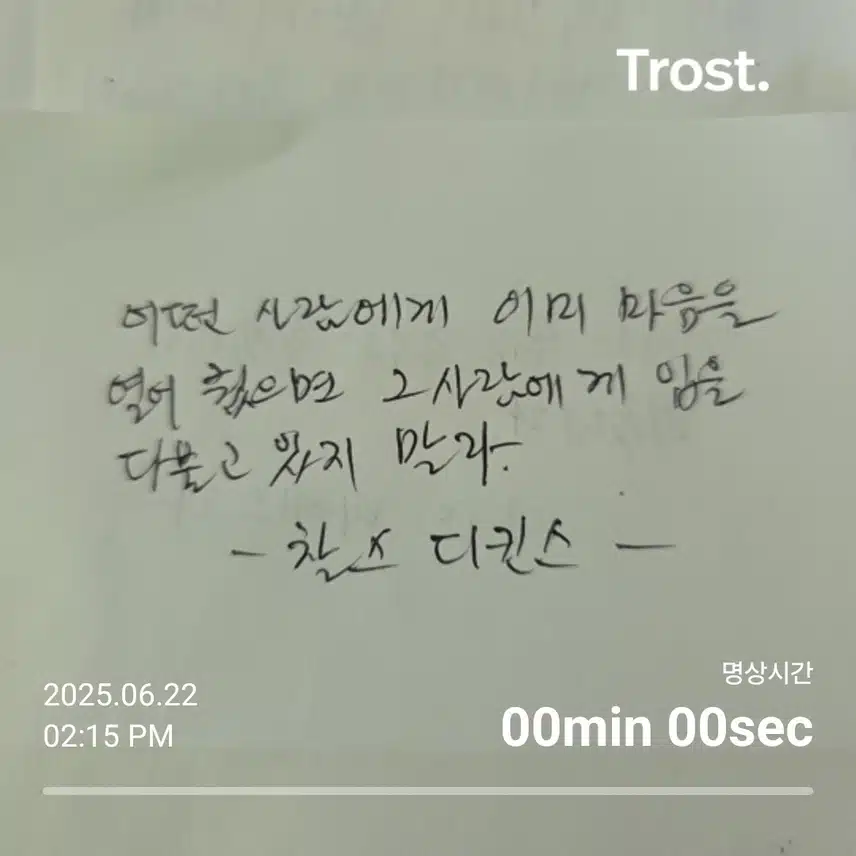 Trost.
어떤 사람에게 이미 마음을
열어 줬으면 그 사람에게 입을
다물고 있지 말라.
- 찰스 디킨스 -
명상시간
2025.06.22
00min 00sec
02:15 PM